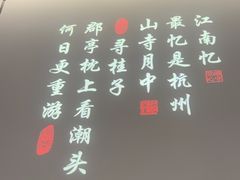 江南忆
最忆是杭州
山寺月中
寻桂子
郡亭枕上看潮头
何日更重游